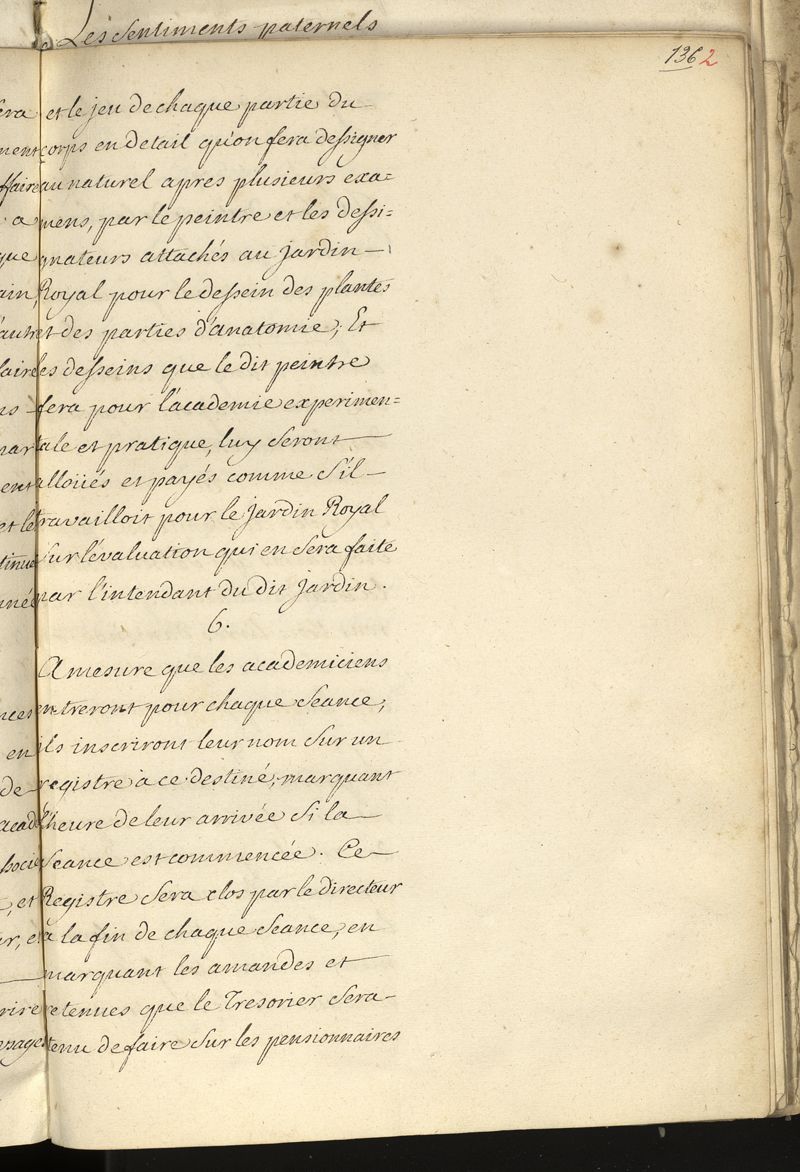 Les sentiments paternels
1362
et le jeu de chaque partie du
corps en detail qu'on fera dessigner
au naturel apres plusieurs exa=
mens, par le peintre et les dessi=
gnateurs attachés au jardin
Royal pour le dessein des plantes
et des parties d'anatomie; Et
les desseins que le dit peintre
fera pour l'academie experimen=
tale et pratique, luy seront
alloüés et payés comme s'il
travailloit pour le jardin Royal
sur l'évaluation qui en sera faite
par l'intendant du dit jardin.
6.
A mesure que les academiciens
entreront pour chaque seance,
ils inscriront leur nom sur un
registre à ce destiné, marquant
l'heure de leur arrivée si la
seance est commencée. Ce
Registre sera clos par le directeur
a la fin de chaque seance, en
marquant les amandes et
retenues que le Tresorier sera
tenu de faire sur les pensionnaires